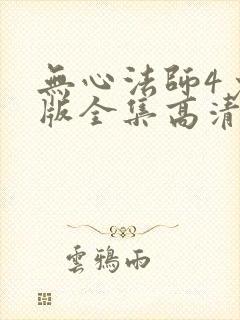 無心法師4
版全集高清
雲鴉雨